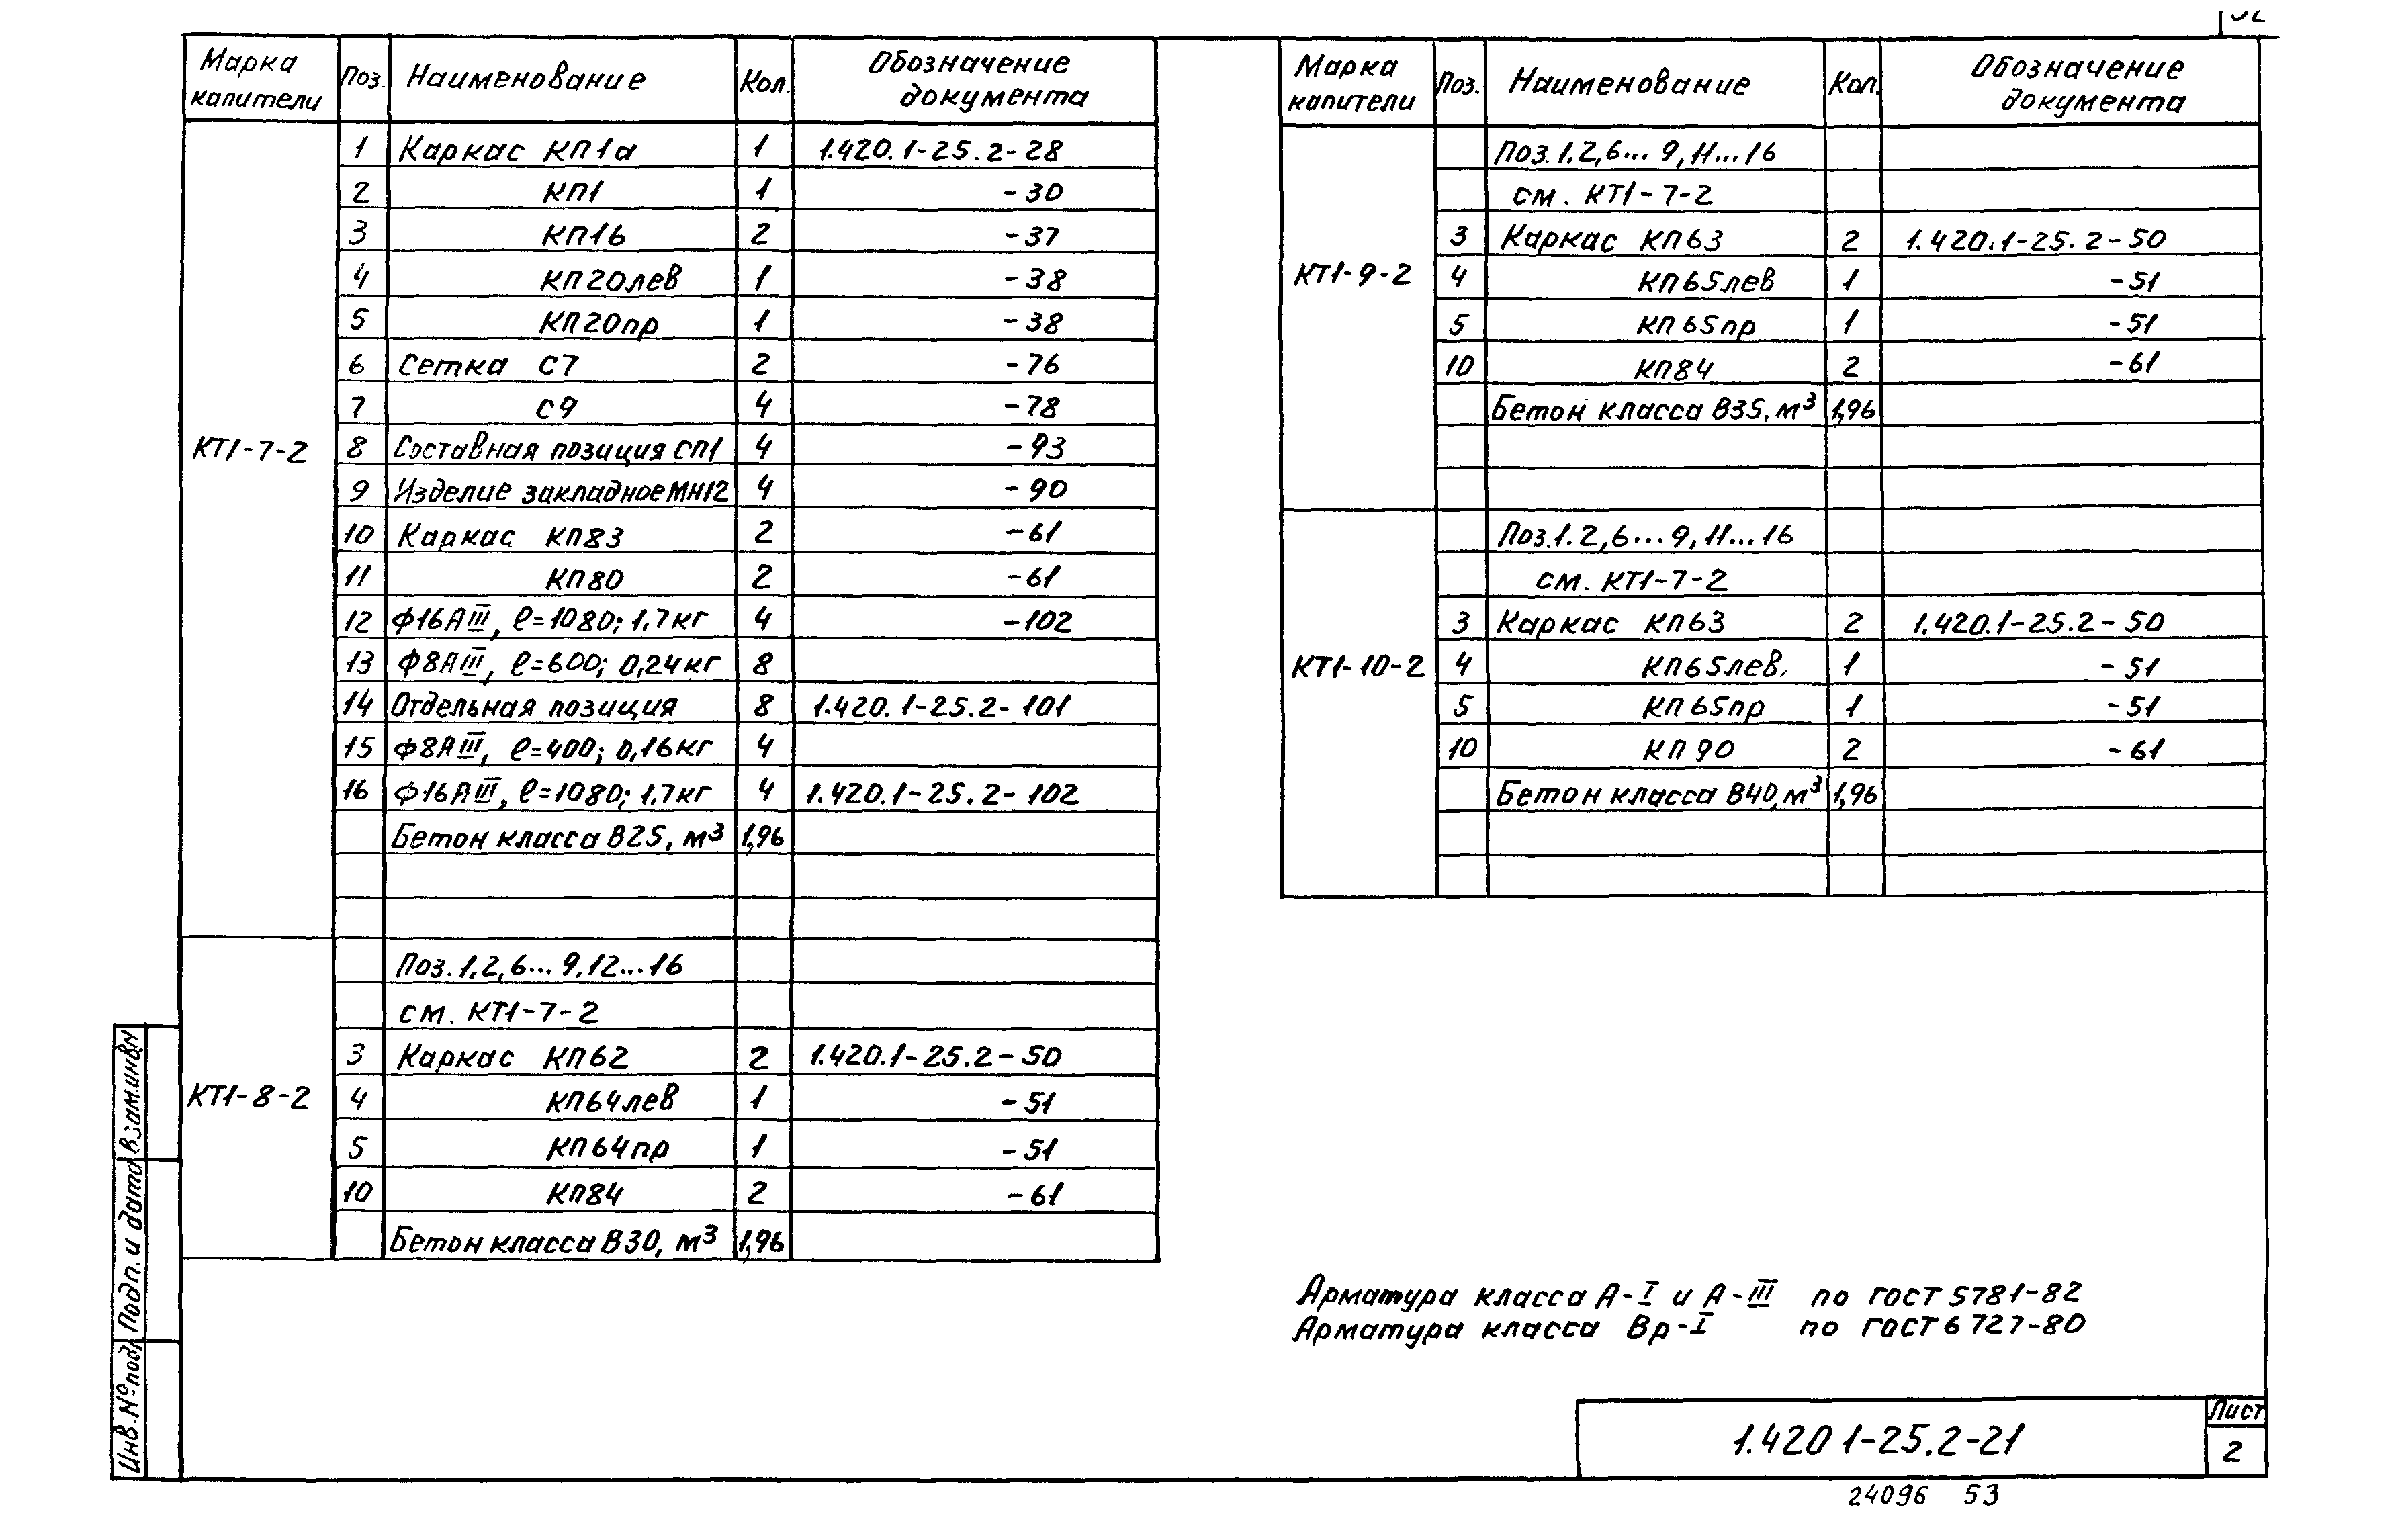 Марка капители Поз. Наименование Кол. Обозначение документа
КТ1-7-2
1 Каркас КП1а 1 1.420.1-25.2-28
2 КП1 1 -30
3 КП16 2 -37
4 КП20лев 1 -38
5 КП20пр 1 -38
6 Сетка С7 2 -76
7 С9 4 -78
8 Составная позиция СП1 4 -93
9 Изделие закладное МН12 4 -90
10 Каркас КП83 2 -61
11 КП80 2 -61
12 Ф16АIII, ℓ=1080; 1.7кг 4 -102
13 Ф8АIII, ℓ=600; 0,24кг 8
14 Отдельная позиция 8 1.420.1-25.2-101
15 Ф8АIII, ℓ=400; 0,16кг 4
16 Ф16АIII, ℓ=1080; 1.7кг 4 1.420.1-25.2-102
Бетон класса В25, м³ 1,96
КТ1-8-2
Поз. 1,2,6...9,12...16
см. КТ1-7-2
3 Каркас КП62 2 1.420.1-25.2-50
4 КП64лев 1 -51
5 КП64пр 1 -51
10 КП84 2 -61
Бетон класса В30, м³ 1,96
Марка капители Поз. Наименование Кол. Обозначение документа
КТ1-9-2
Поз. 1.2,6...9,11...16
см. КТ1-7-2
3 Каркас КП63 2 1.420.1-25.2-50
4 КП65лев 1 -51
5 КП65пр 1 -51
10 КП84 2 -61
Бетон класса В35, м³ 1,96
КТ1-10-2
Поз.1.2,6...9,11...16
см. КТ1-7-2
3 Каркас КП63 2 1.420.1-25.2-50
4 КП65лев. 1 -51
5 КП65пр 1 -51
10 КП90 2 -61
Бетон класса В40, м³ 1,96
Арматура класса А-I и А-III по ГОСТ 5781-82
Арматура класса Вр-I по ГОСТ 6727-80
1.420 1-25.2-21
Лист
2
24096 53
Инв. № подл.
Подп. и дата
Взам.инв.N